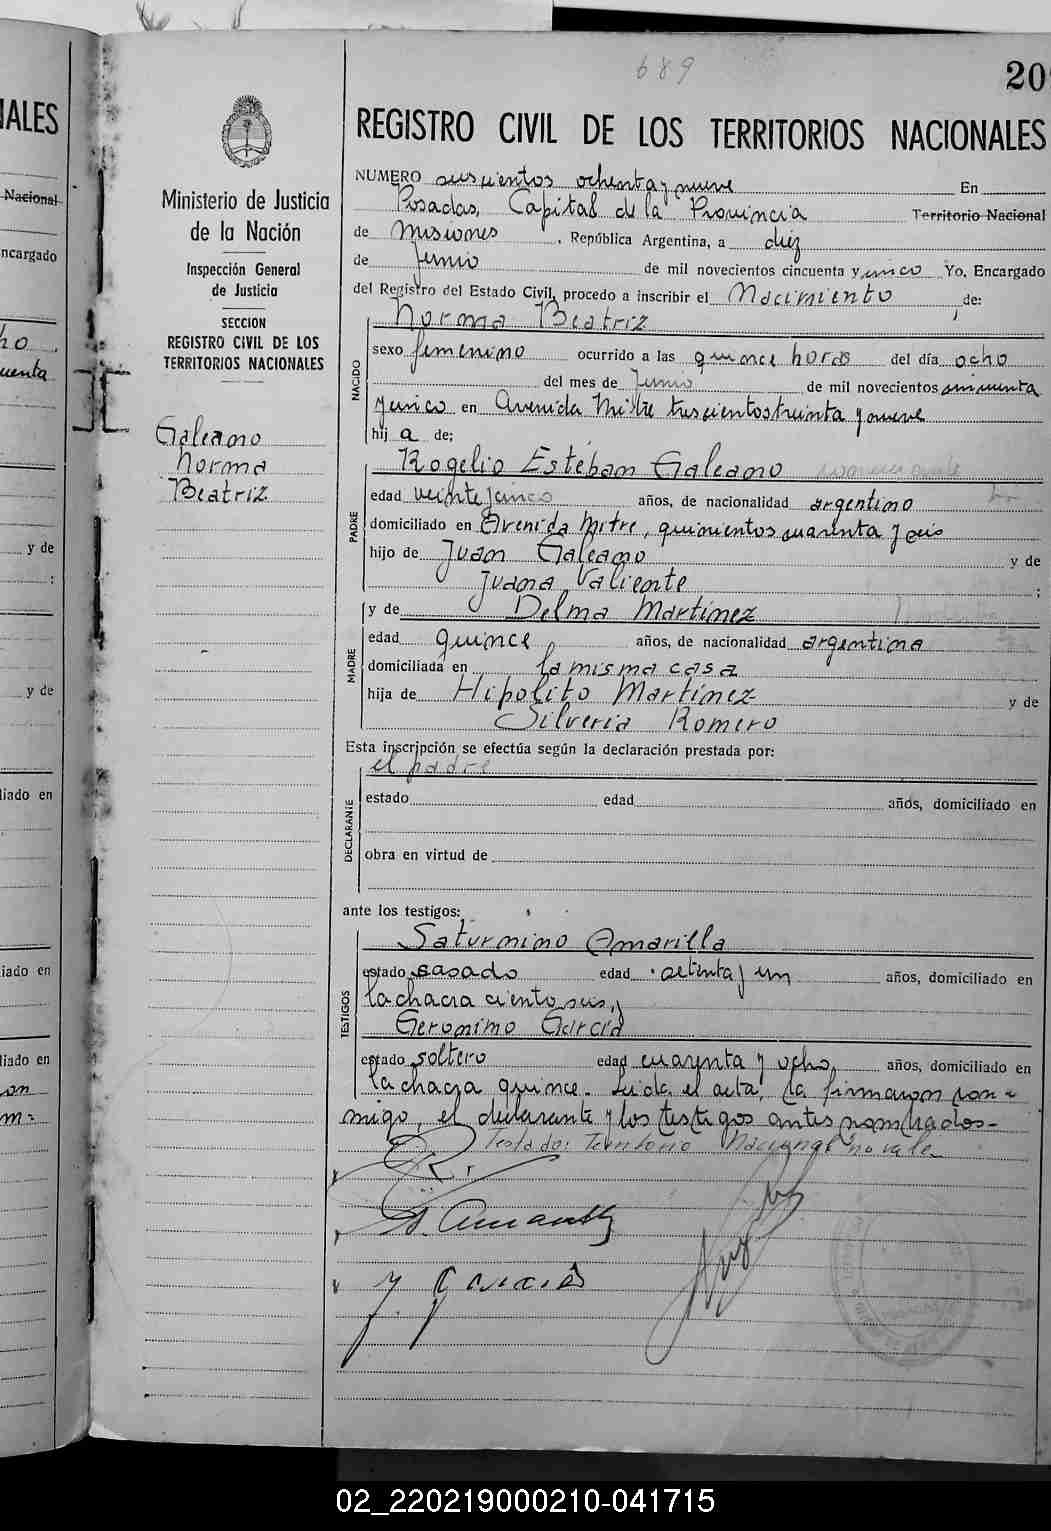 689
20
NALES
Nacional
ncargado
uenta
y de
y de
liado en
iado en
liado en
Ministerio de Justicia
de la Nación
Inspección General
de Justicia
SECCION
REGISTRO CIVIL DE LOS
TERRITORIOS NACIONALES
Galeano
Norma
Beatriz
REGISTRO CIVIL DE LOS TERRITORIOS NACIONALES
NUMERO seiscientos ochenta y nueve En
Posadas, Capital de la Provincia Territorio Nacional
de Misiones, República Argentina, a diez
de Junio de mil novecientos cincuenta y unico Yo, Encargado
del Registro del Estado Civil, procedo a inscribir el Nacimiento de:
Norma Beatriz
NACIDO
sexo femenino ocurrido a las quince horas del día ocho
del mes de Junio de mil novecientos cincuenta
y cinco en Avenida Mitre trescientos treinta y nueve
hij a de;
PADRE
Rogelio Esteban Galeano
edad veinte y cinco años, de nacionalidad argentino
domiciliado en Avenida Mitre, quinientos cuarenta y seis
hijo de Juan Galeano y de
Juana Valiente ;
MADRE
y de Delma Martinez
edad quince años, de nacionalidad argentina
domiciliada en la misma casa
hija de Hipolito Martinez y de
Silveria Romero
Esta inscripción se efectúa según la declaración prestada por:
el padre
DECLARANTE
estado edad años, domiciliado en
obra en virtud de
ante los testigos:
TESTIGOS
Saturnino Amarilla
estado casado edad setenta y un años, domiciliado en
la chacra ciento seis, y
Geronimo Garcia
estado soltero edad cuarenta y ocho, años, domiciliado en
la chacra quince. Leida el acta, la firmaron con-
migo, el declarante y los testigos antes nombrados-
Testado: Territorio Nacional no vale
S. Amarilla
J. Garcia
02_220219000210-041715